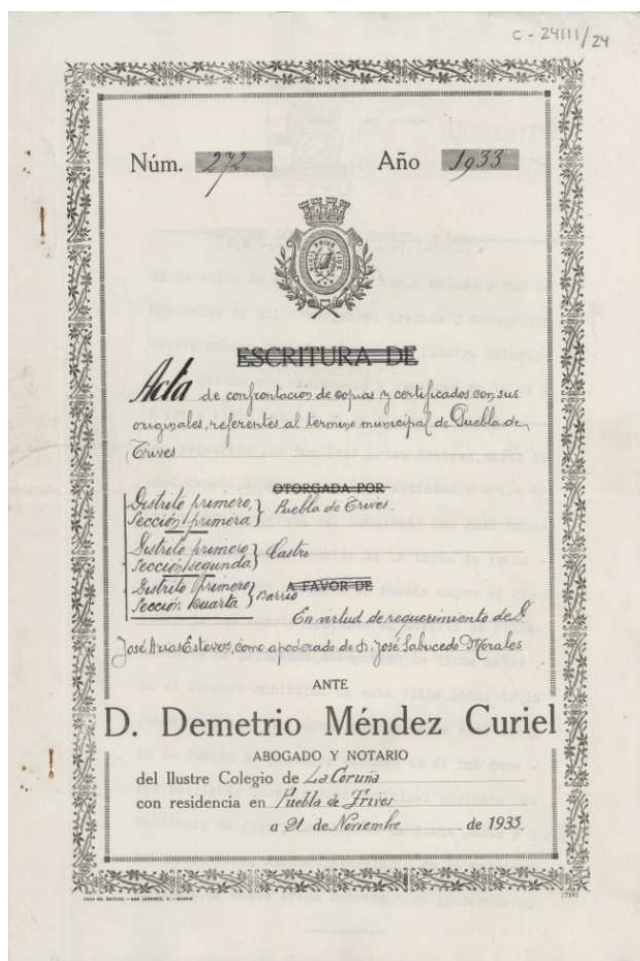 C - 24111/24
Núm. 272 Año 1933
NIHIL PRIUS FIDE
ESCRITURA DE
Acta de confrontacion de copias y certificados con sus
originales, referentes al termino municipal de Puebla de
Trives
OTORGADA POR
Distrito primero, Sección primera } Puebla de Trives.
Distrito primero Sección segunda } Castro
Distrito primero Sección cuarta } Barrio
A FAVOR DE
En virtud de requerimiento de D.
José Arias Estevez, como apoderado de D. José Sabucedo Morales
ANTE
D. Demetrio Méndez Curiel
ABOGADO Y NOTARIO
del Ilustre Colegio de La Coruña
con residencia en Puebla de Trives
a 21 de Noviembre de 1933.